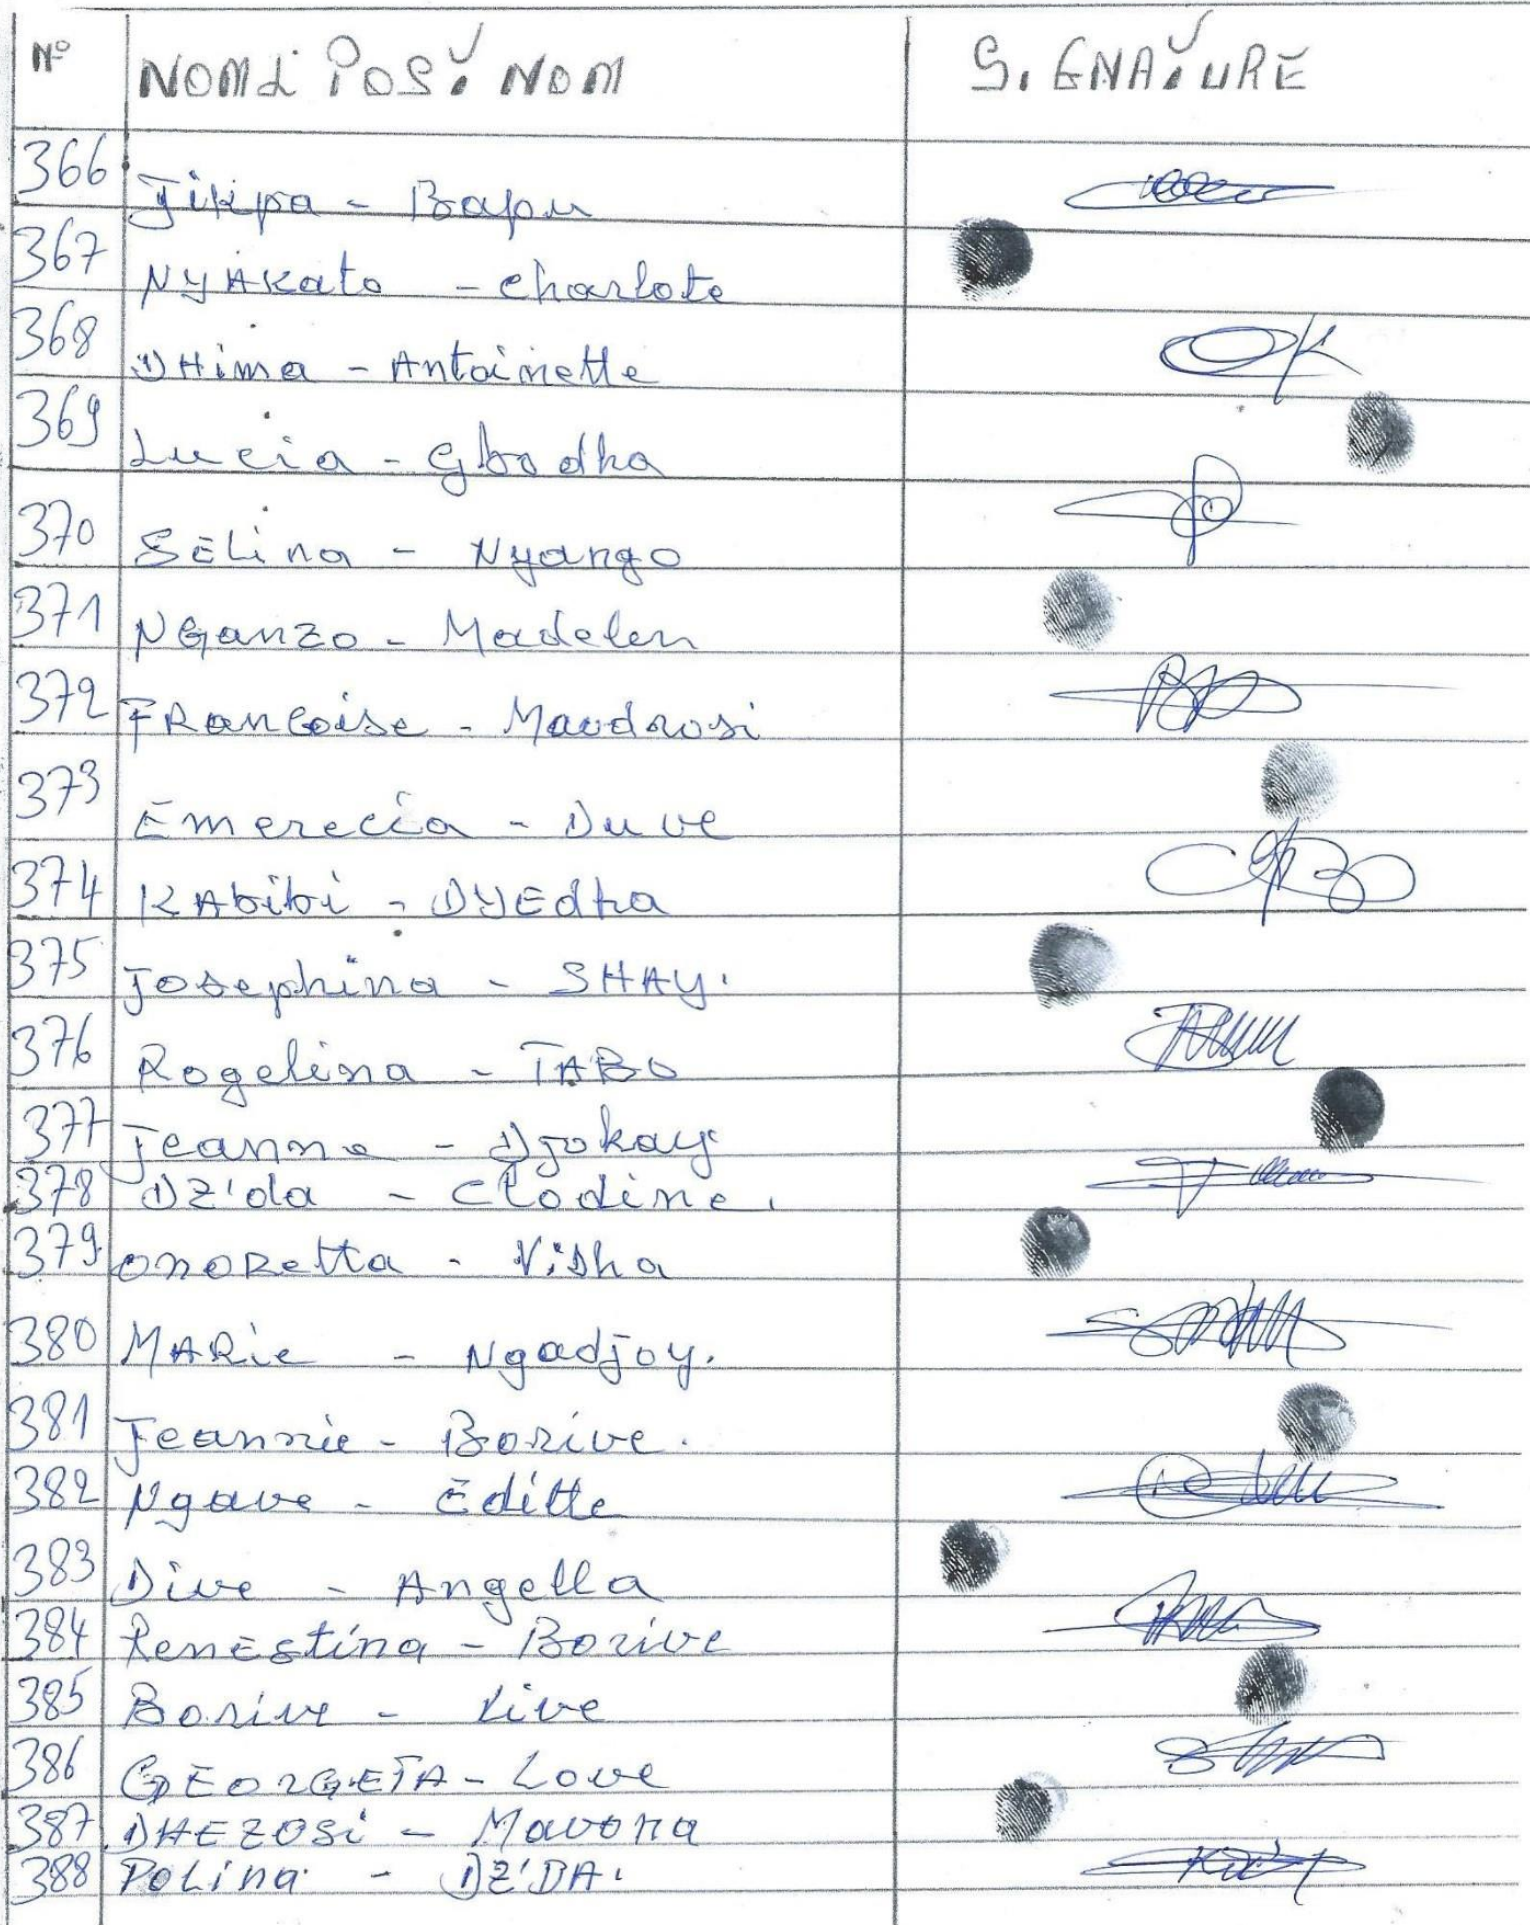 N° NOM & POST NOM SIGNATURE
366 Jikpa - Bapu
367 NYAKato - charlote
368 DHima - Antoinette
369 Lucia - Gbodha
370 SELina - Nyango
371 NGanzo - Madelen
372 FRancoise - Mavdrosi
373 Emerecia - Duve
374 KAbibi - DYEdha
375 Josephina - SHAY.
376 Rogelina - TABO
377 Jeanne - Djokay
378 DZ'da - Clodine.
379 onoRetta - Visha
380 MARie - Ngadjoy.
381 Jeannie - Borive.
382 Ngave - Editte
383 Dive - Angella
384 RenEstina - Borive
385 Borive - Vive
386 GEORGETA - Love
387 DHEZOSi - Mavona
388 POLina - DZ'DA.